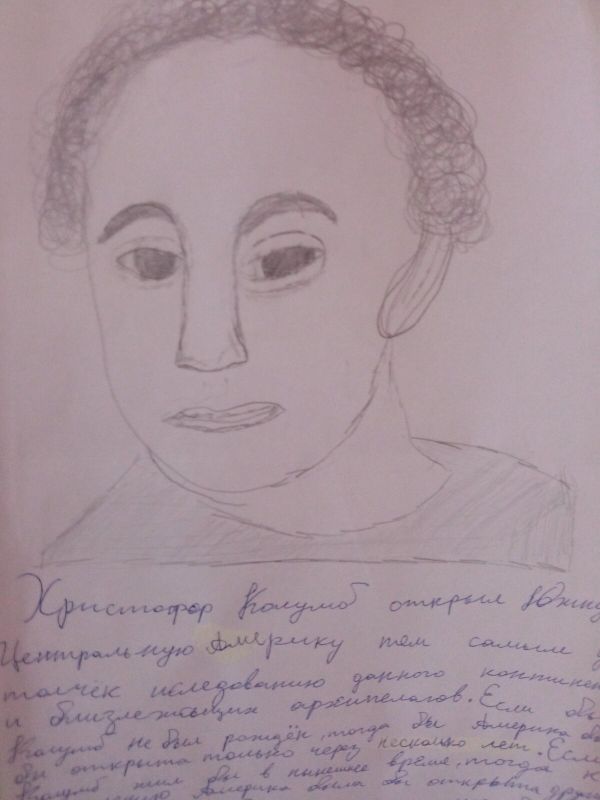 Христофор Колумб открыл Южну
Центральную Америку тем самым
толчёк иследованию данного континен
и близлежащих архипелагов. Если бы
Колумб не был рождён, тогда бы Америка
бы открыта только через несколько лет. Если
Колумб жил бы в нынешнее время, тогда
Америка была бы открыта